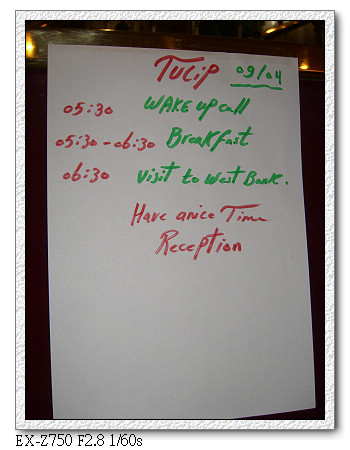 Tulip 09/04
05:30 WAKE up call
05:30 - 06:30 Breakfast
06:30 visit to West Bank.
Have a nice Time
Reception
EX-Z750 F2.8 1/60s